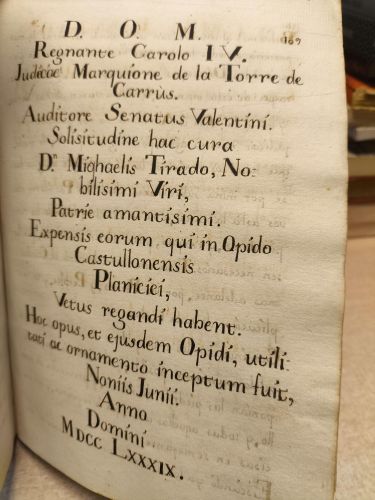 D. O. M.
169
Regnante Carolo IV.
Judice Marquione de la Torre de
Carrùs.
Auditore Senatus Valentini.
Solisitudine hac cura
Dⁿ Mighaelis Tirado, No-
bilisimi Viri,
Patrie amantisimi.
Expensis eorum qui in Opido
Castullonensis
Planiciei,
Vetus regandi habent.
Hoc opus, et ejusdem Opidi, utili-
tati ac ornamento inceptum fuit,
Noniis Junii.
Anno
Domini
MDCC LXXXIX.